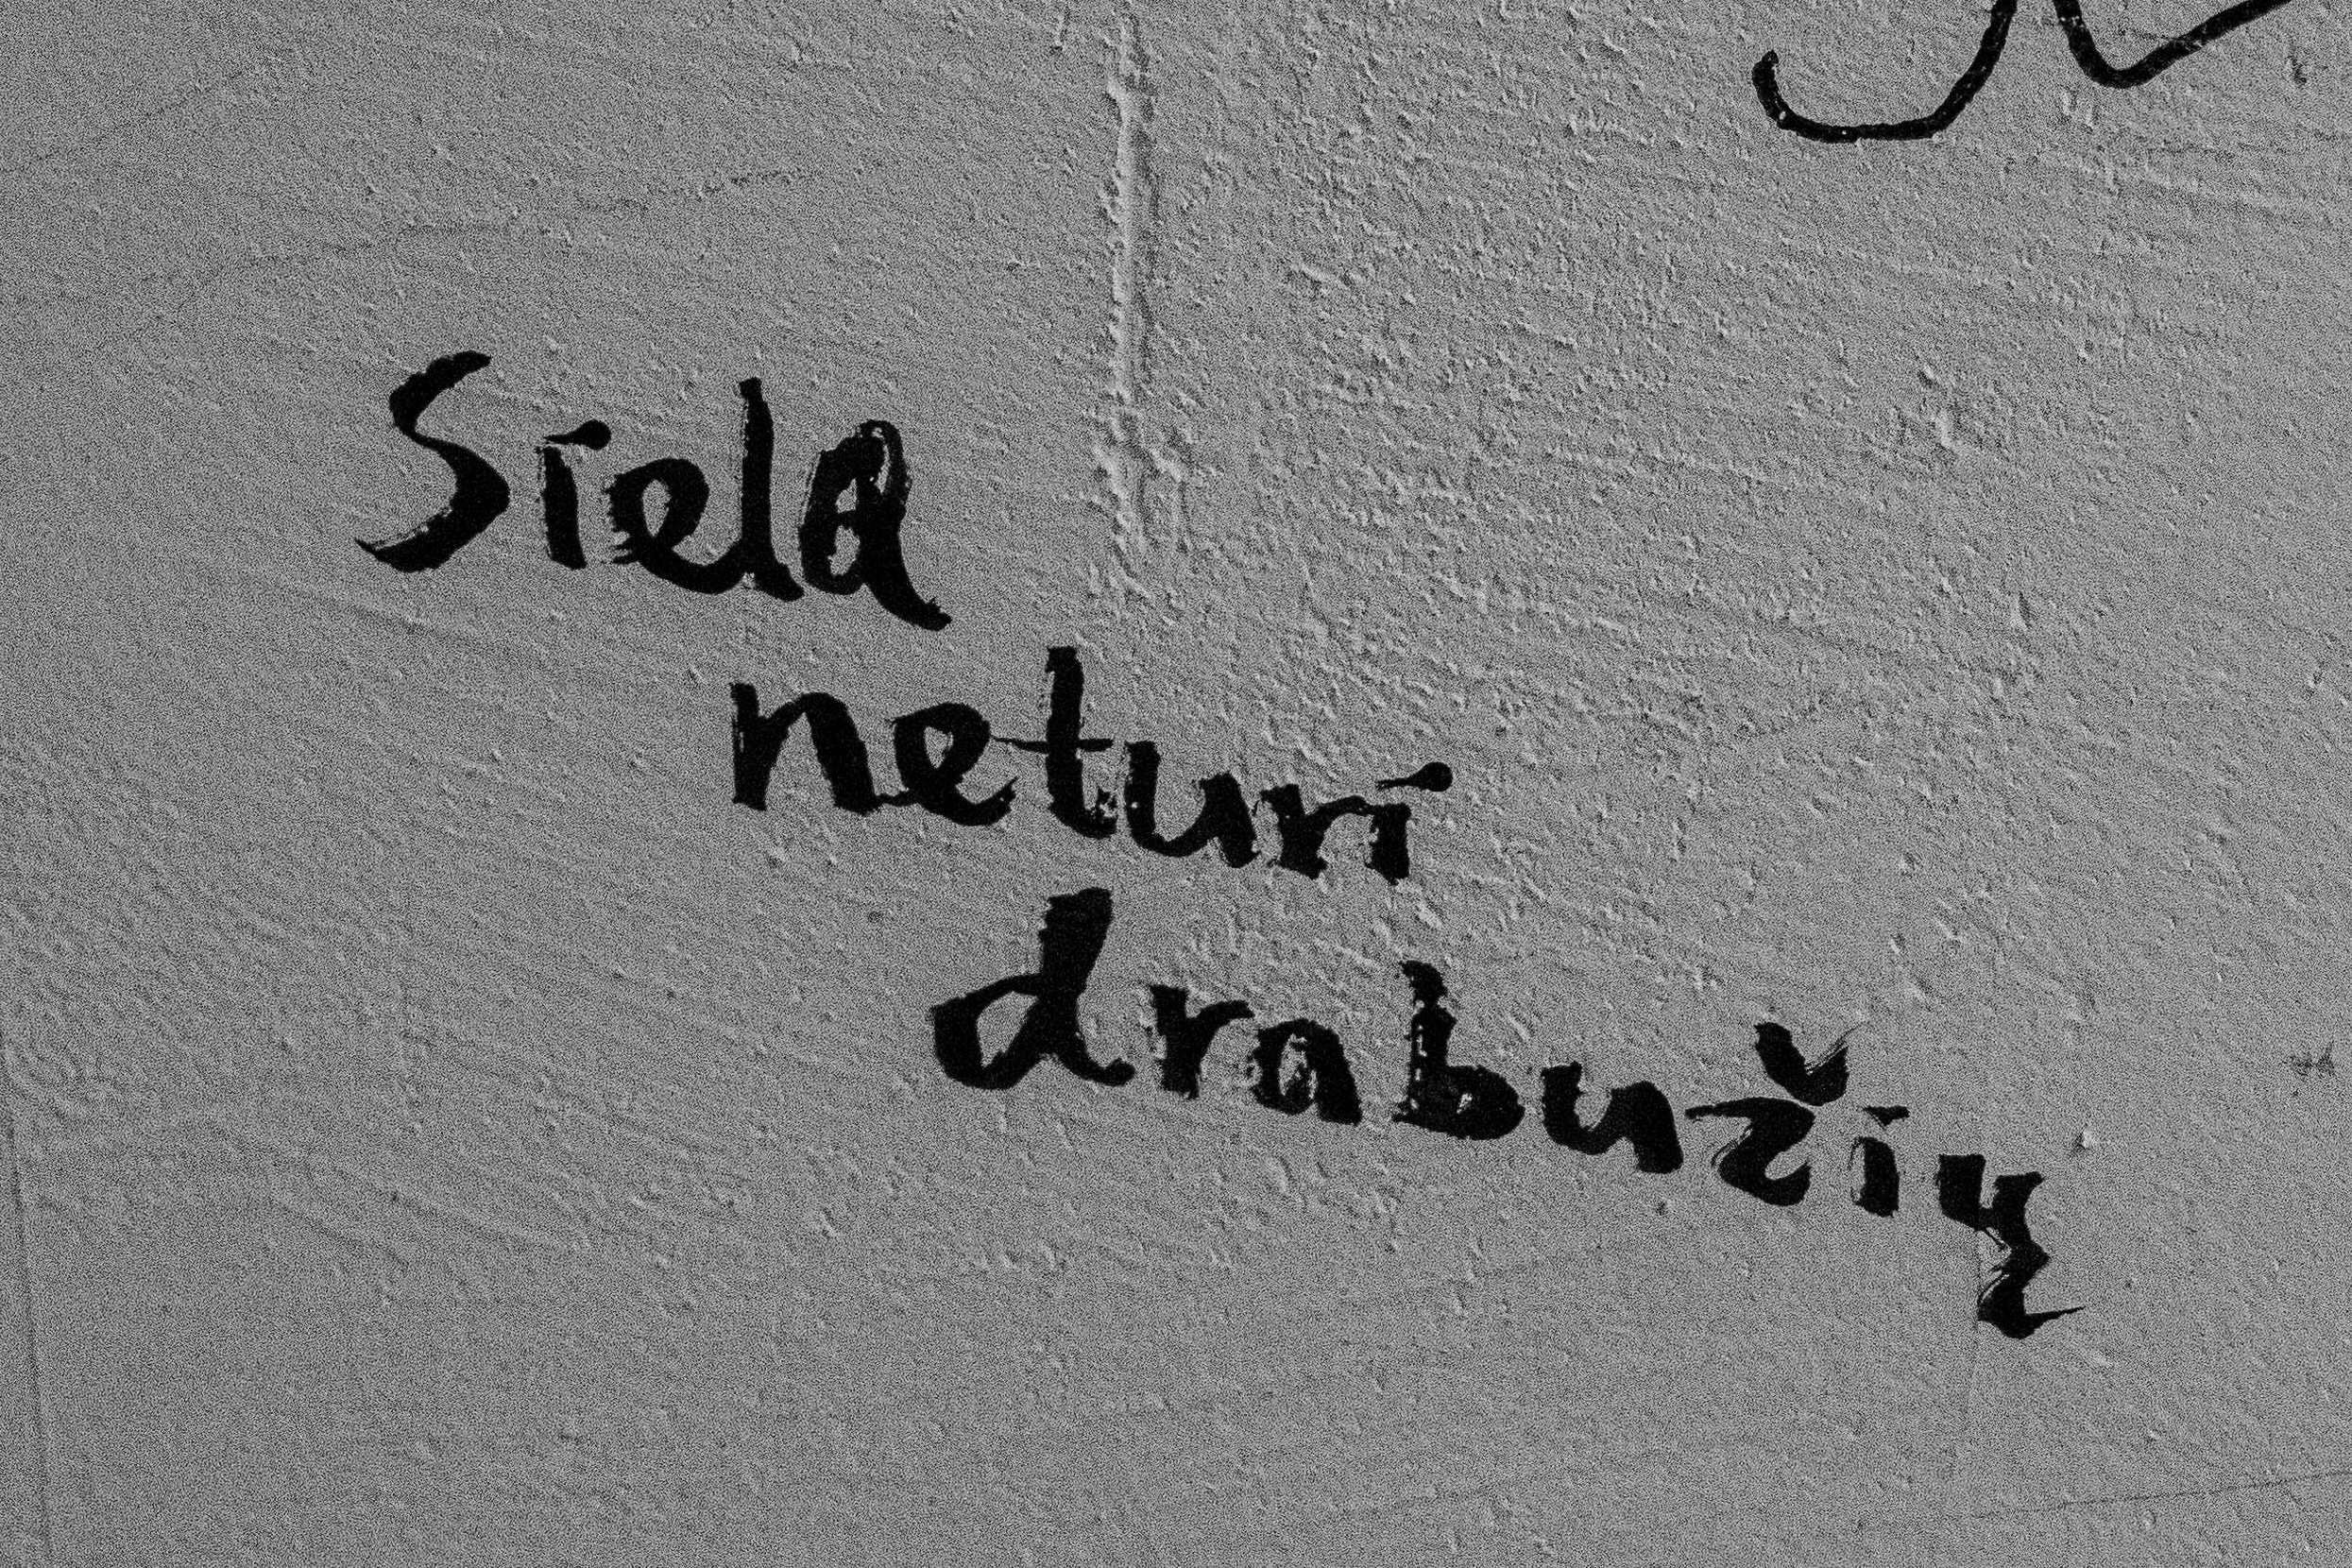 Siela
neturi
drabužių